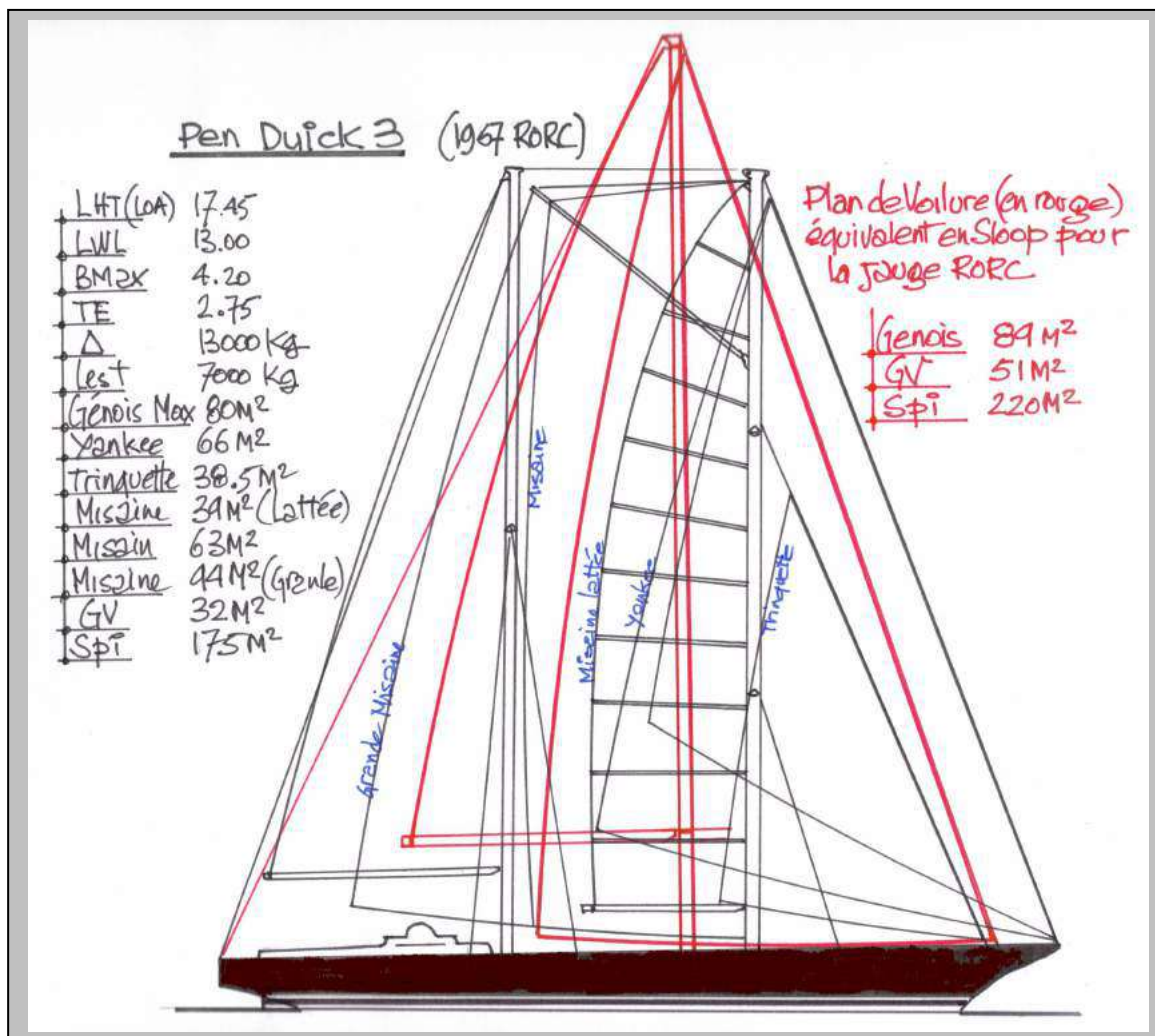 Pen Duick 3 (1967 RORC)
LHT (LOA) 17.45
LWL 13.00
BMax 4.20
TE 2.75
Δ 13000 Kg
Lest 7000 Kg
Génois Max 80M²
Yankee 66M²
Trinquette 38.5M²
Misaine 34M² (Lattée)
Misain 63M²
Misaine 44M² (Grande)
GV 32M²
Spi 175M²
Plan de Voilure (en rouge)
équivalent en Sloop pour
la Jauge RORC
Genois 89M²
GV 51M²
Spi 220M²
Grande Misaine
Misaine
Misaine lattée
Yankee
Trinquette